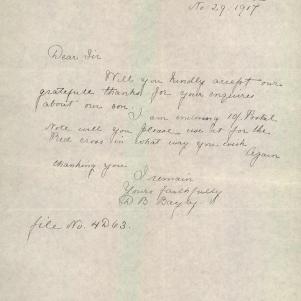 No. 29. 1917
Dear Sir
Will you kindly accept our
gratefull thanks for your enquires
about our son. I am enclosing 10/ Postal
Note will you please use it for the
Red cross in what way you wish
Again
thanking you
I remain
Yours faithfully
D B Bayley
file No. 4D63.